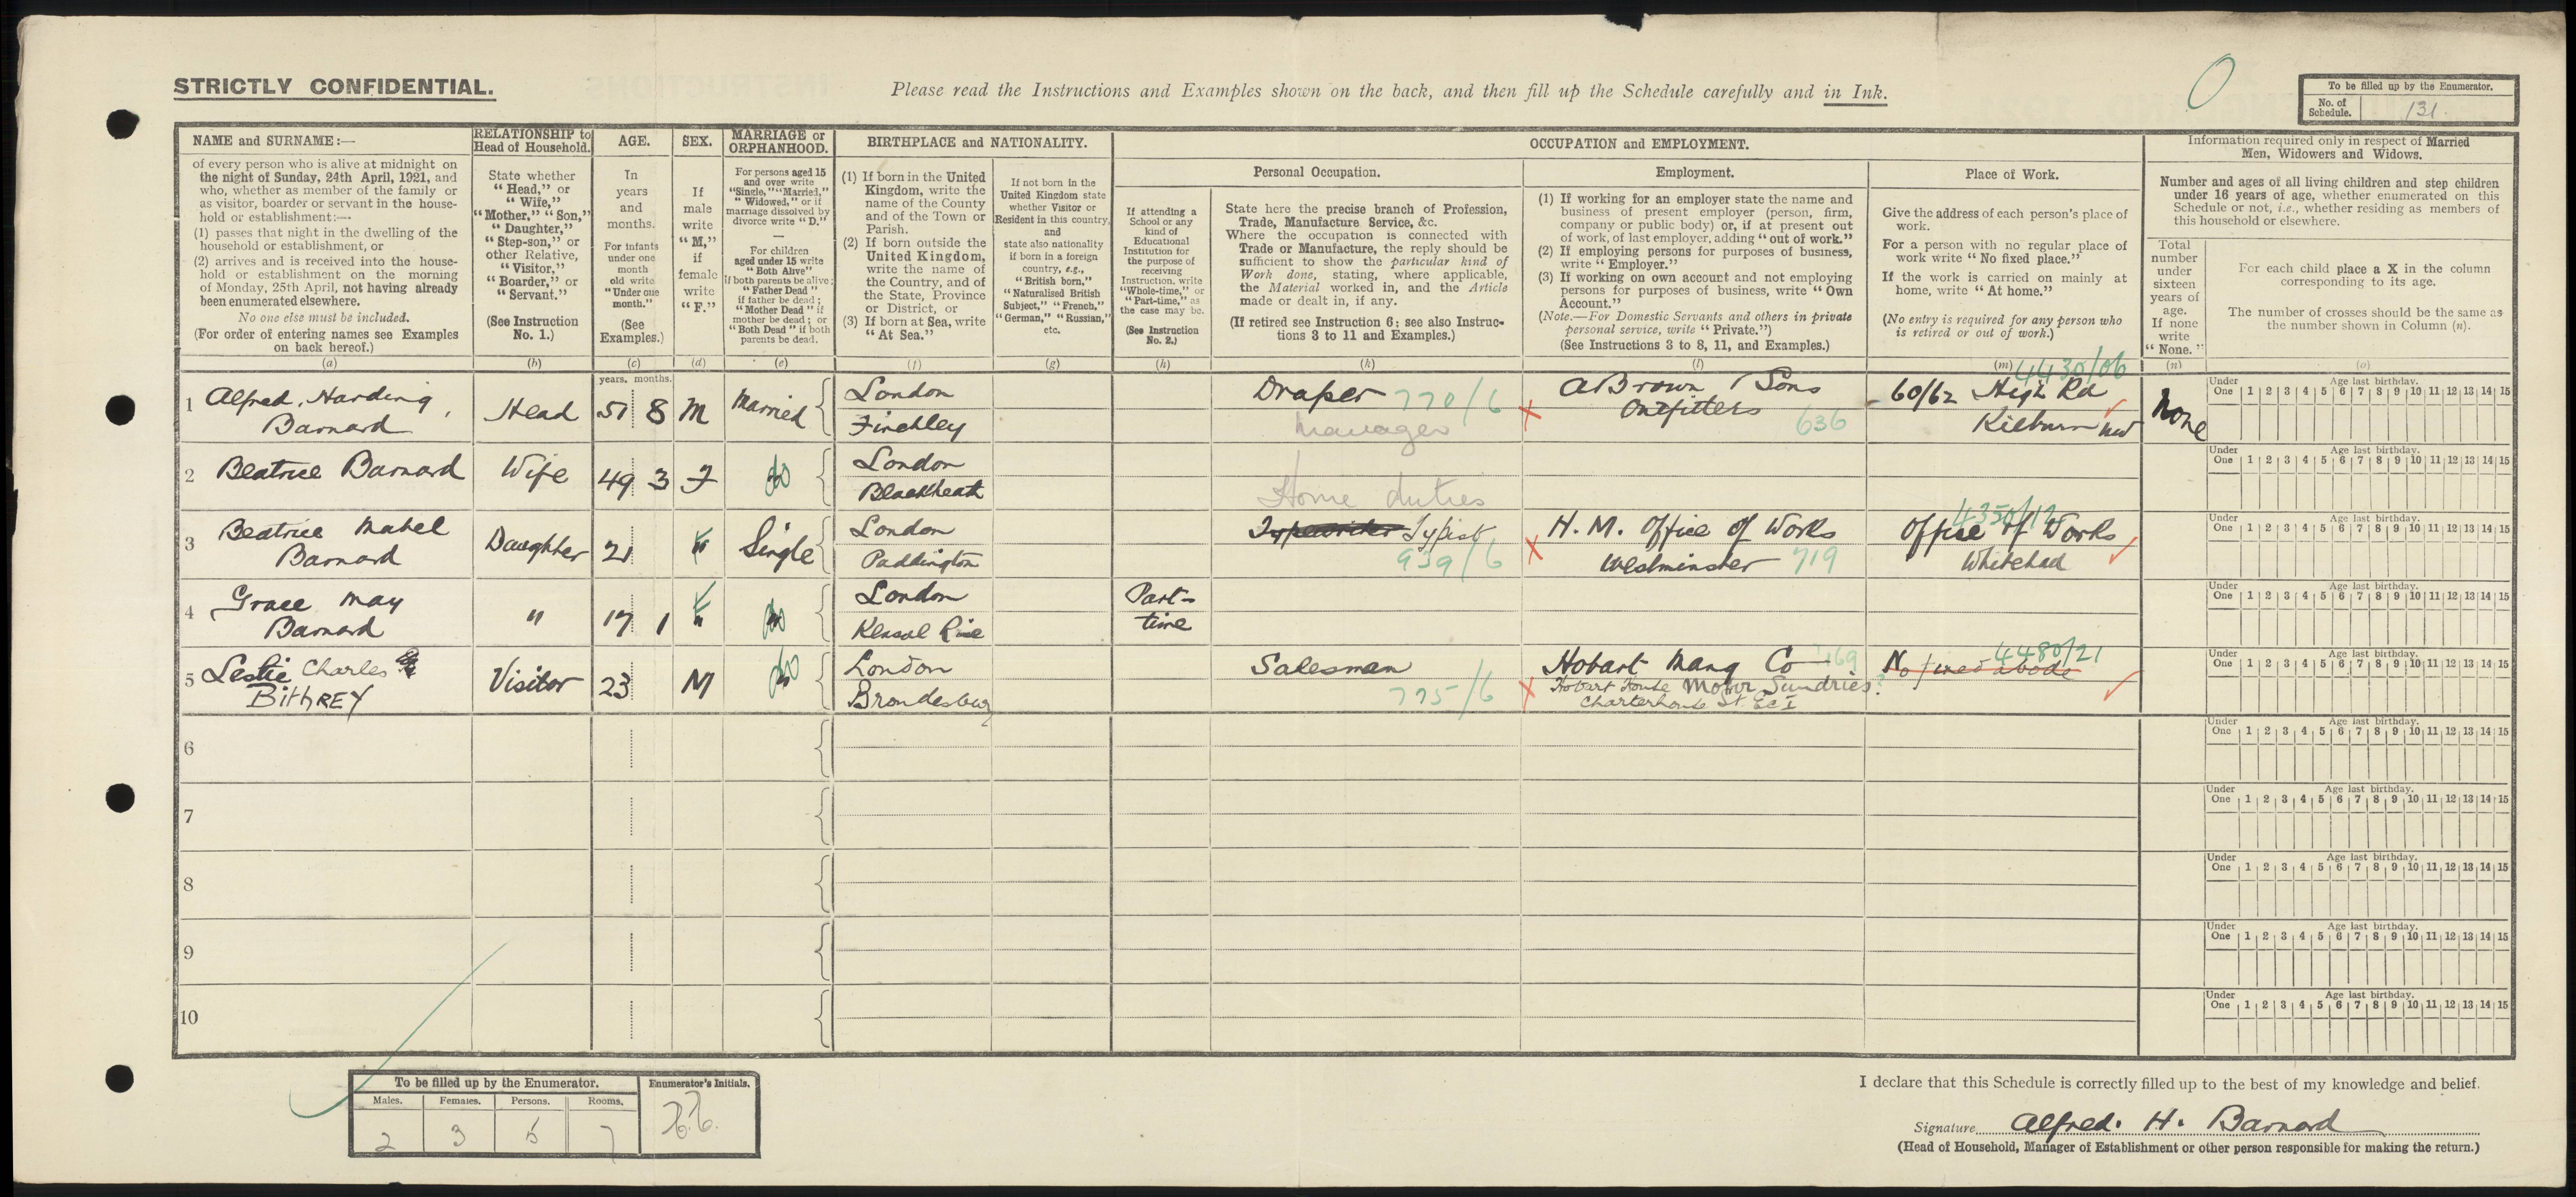 STRICTLY CONFIDENTIAL.
Please read the Instructions and Examples shown on the back, and then fill up the Schedule carefully and in Ink.
To be filled up by the Enumerator.
No. of Schedule. 131.
NAME and SURNAME:—
of every person who is alive at midnight on
the night of Sunday, 24th April, 1921, and
who, whether as member of the family or
as visitor, boarder or servant in the house-
hold or establishment:—
(1) passes that night in the dwelling of the
household or establishment, or
(2) arrives and is received into the house-
hold or establishment on the morning
of Monday, 25th April, not having already
been enumerated elsewhere.
No one else must be included.
(For order of entering names see Examples
on back hereof.)
(a)
RELATIONSHIP to
Head of Household.
State whether
"Head," or
"Wife,"
"Mother," "Son,"
"Daughter,"
"Step-son," or
other Relative,
"Visitor,"
"Boarder," or
"Servant."
(See Instruction
No. 1.)
(b)
AGE.
In
years
and
months.
For infants
under one
month
old write
"Under one
month."
(See
Examples.)
(c)
SEX.
If
male
write
"M,"
if
female
write
"F."
(d)
MARRIAGE or
ORPHANHOOD.
For persons aged 15
and over write
"Single," "Married,"
"Widowed," or if
marriage dissolved by
divorce write "D."
For children
aged under 15 write
"Both Alive"
if both parents be alive;
"Father Dead"
if father be dead;
"Mother Dead" if
mother be dead; or
"Both Dead" if both
parents be dead.
(e)
BIRTHPLACE and NATIONALITY.
(1) If born in the United
Kingdom, write the
name of the County
and of the Town or
Parish.
(2) If born outside the
United Kingdom,
write the name of
the Country, and of
the State, Province
or District, or
(3) If born at Sea, write
"At Sea."
(f)
If not born in the
United Kingdom state
whether Visitor or
Resident in this country,
and
state also nationality
if born in a foreign
country, e.g.,
"British born,"
"Naturalised British
Subject," "French,"
"German," "Russian,"
etc.
(g)
OCCUPATION and EMPLOYMENT.
If attending a
School or any
kind of
Educational
Institution for
the purpose of
receiving
Instruction, write
"Whole-time," or
"Part-time," as
the case may be.
(See Instruction
No. 2.)
(h)
Personal Occupation.
State here the precise branch of Profession,
Trade, Manufacture, Service, &c.
Where the occupation is connected with
Trade or Manufacture, the reply should be
sufficient to show the particular kind of
Work done, stating, where applicable,
the Material worked in, and the Article
made or dealt in, if any.
(If retired see Instruction 6; see also Instruc-
tions 3 to 11 and Examples.)
(k)
Employment.
(1) If working for an employer state the name and
business of present employer (person, firm,
company or public body) or, if at present out
of work, of last employer, adding "out of work."
(2) If employing persons for purposes of business,
write "Employer."
(3) If working on own account and not employing
persons for purposes of business, write "Own
Account."
(Note.—For Domestic Servants and others in private
personal service, write "Private.")
(See Instructions 3 to 8, 11, and Examples.)
(l)
Place of Work.
Give the address of each person's place of
work.
For a person with no regular place of
work write "No fixed place."
If the work is carried on mainly at
home, write "At home."
(No entry is required for any person who
is retired or out of work.)
(m)
Information required only in respect of Married
Men, Widowers and Widows.
Number and ages of all living children and step children
under 16 years of age, whether enumerated on this
Schedule or not, i.e., whether residing as members of
this household or elsewhere.
Total
number
under
sixteen
years of
age.
If none
write
"None."
(n)
For each child place a X in the column
corresponding to its age.
The number of crosses should be the same as
the number shown in Column (n).
(o)
years. months.
1 Alfred Harding Barnard Head 51 8 M Married London Finchley Draper 770/6 Manager A Brown & Sons Outfitters 636 60/62 High Rd Kilburn NW 4430/06 None
Under One 1 2 3 4 5 6 7 8 9 10 11 12 13 14 15 Age last birthday.
2 Beatrice Barnard Wife 49 3 F do London Blackheath Home duties
Under One 1 2 3 4 5 6 7 8 9 10 11 12 13 14 15 Age last birthday.
3 Beatrice Mabel Barnard Daughter 21 F Single London Paddington Typewriter Typist 939/6 H. M. Office of Works Westminster 719 Office of Works Whitehall 4350/12
Under One 1 2 3 4 5 6 7 8 9 10 11 12 13 14 15 Age last birthday.
4 Grace May Barnard " 17 1 F do London Kensal Rise Part-time
Under One 1 2 3 4 5 6 7 8 9 10 11 12 13 14 15 Age last birthday.
5 Leslie Charles BithREY Visitor 23 M do London Brondesbury Salesman 775/6 Hobart Mang Co Hobart House Motor Sundries? Charterhouse St EC1 No fixed abode 4480/21
Under One 1 2 3 4 5 6 7 8 9 10 11 12 13 14 15 Age last birthday.
6
Under One 1 2 3 4 5 6 7 8 9 10 11 12 13 14 15 Age last birthday.
7
Under One 1 2 3 4 5 6 7 8 9 10 11 12 13 14 15 Age last birthday.
8
Under One 1 2 3 4 5 6 7 8 9 10 11 12 13 14 15 Age last birthday.
9
Under One 1 2 3 4 5 6 7 8 9 10 11 12 13 14 15 Age last birthday.
10
Under One 1 2 3 4 5 6 7 8 9 10 11 12 13 14 15 Age last birthday.
To be filled up by the Enumerator.
Males. Females. Persons. Rooms.
2 3 5 7
Enumerator's Initials.
I declare that this Schedule is correctly filled up to the best of my knowledge and belief.
Signature Alfred. H. Barnard
(Head of Household, Manager of Establishment or other person responsible for making the return.)